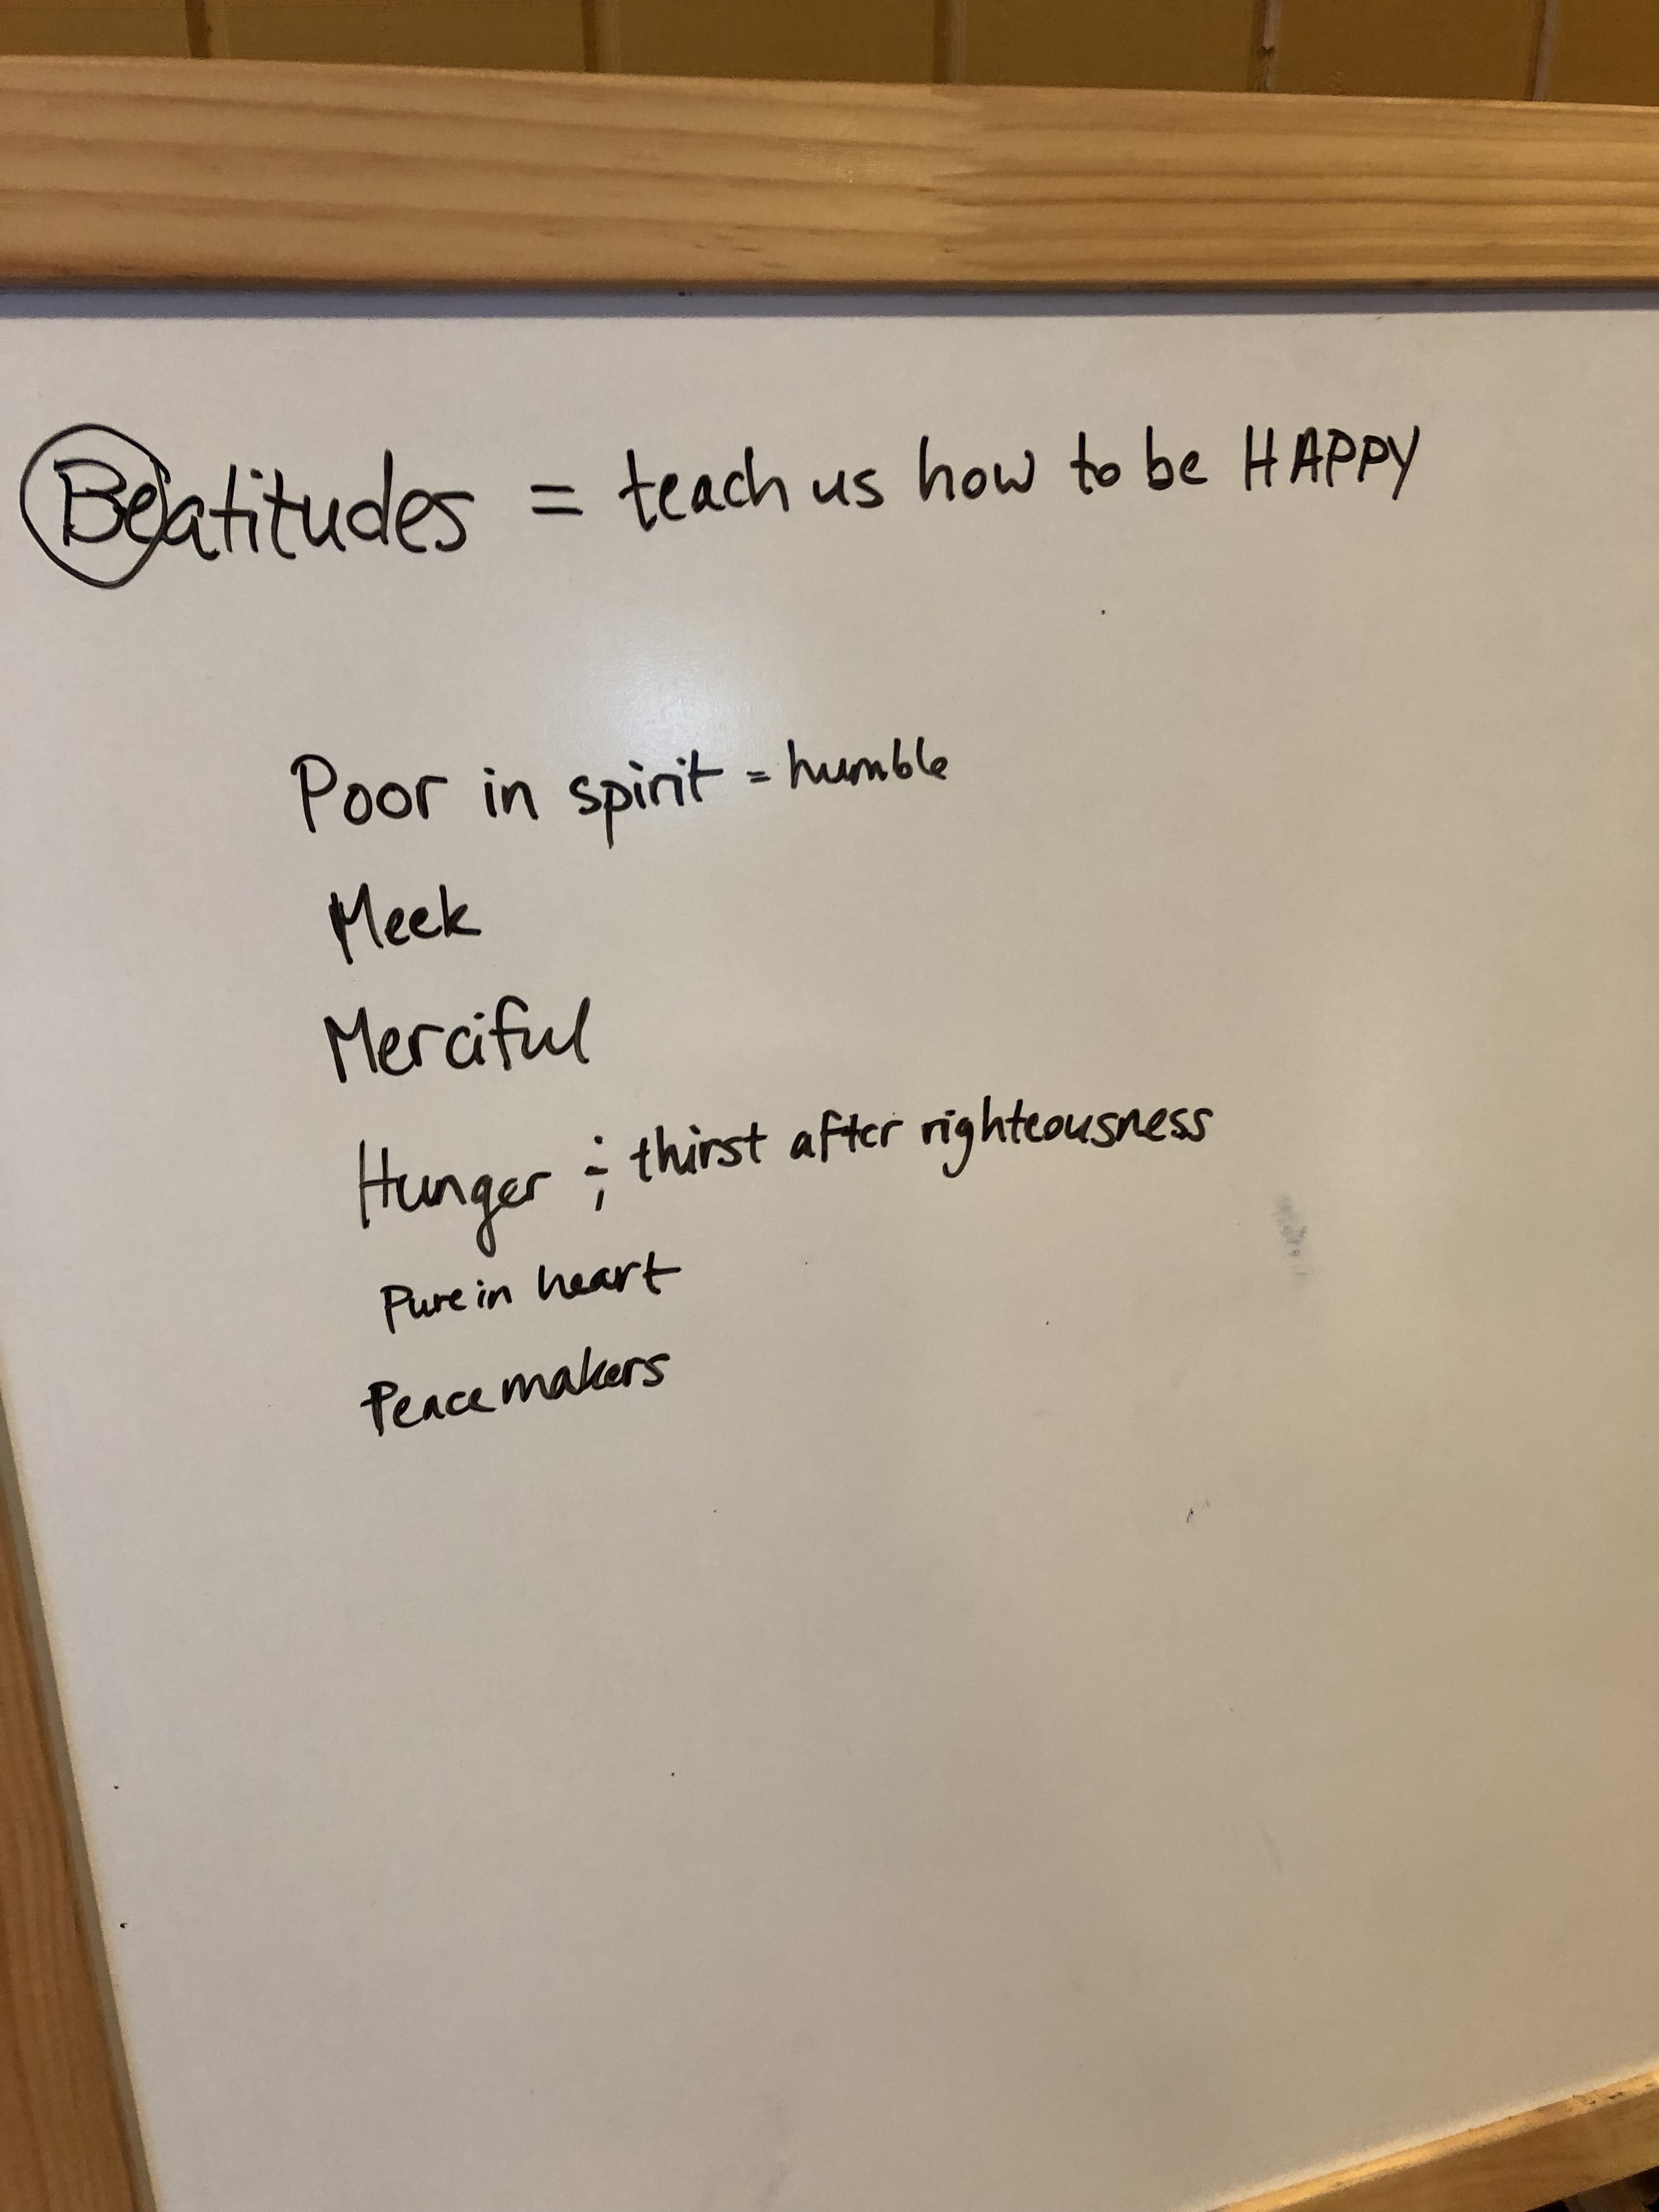 Beatitudes = teach us how to be HAPPY
Poor in spirit = humble
Meek
Merciful
Hunger & thirst after righteousness
Pure in heart
Peacemakers